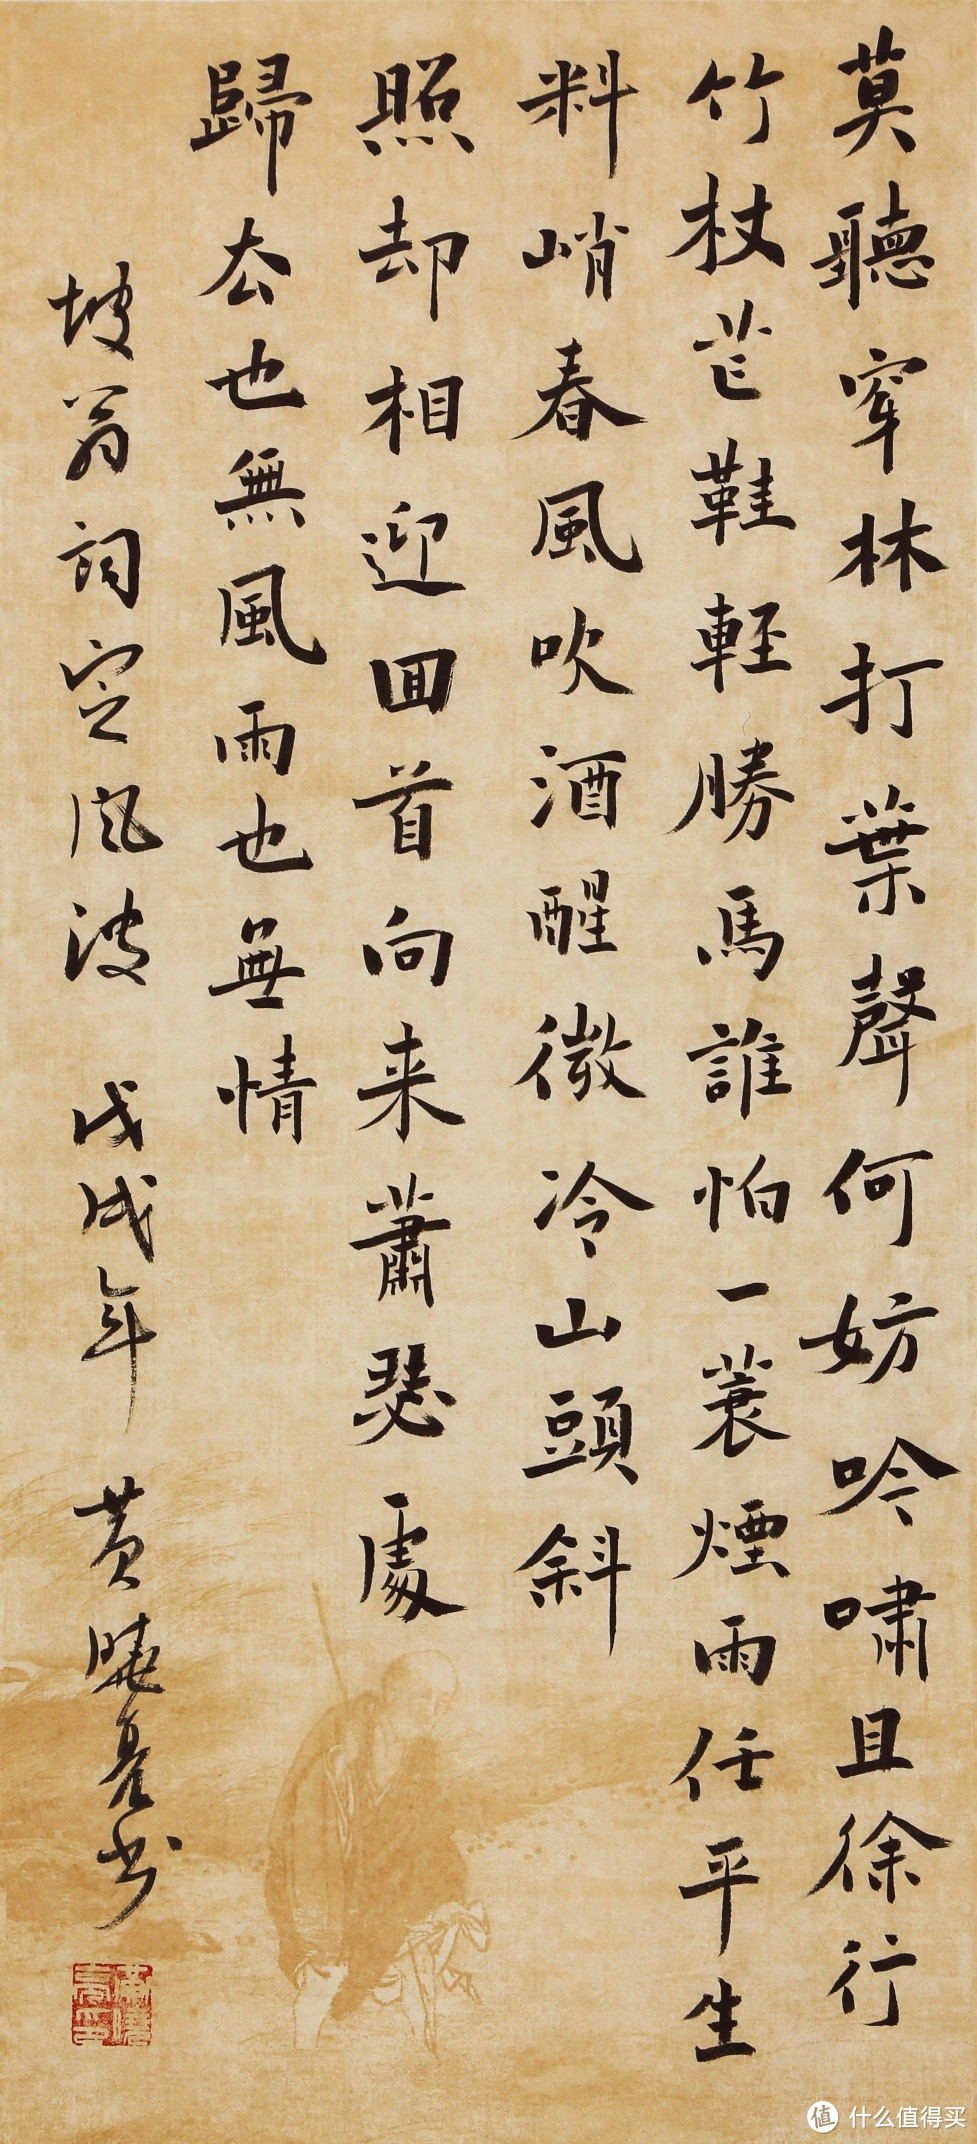 莫聽穿林打葉聲何妨吟嘯且徐行
竹杖芒鞋輕勝馬誰怕一蓑煙雨任平生
料峭春風吹酒醒微冷山頭斜
照却相迎囬首向来蕭瑟處
歸去也無風雨也無情
坡翁詞定风波 戊戌年 黄曉亮书
值 什么值得买